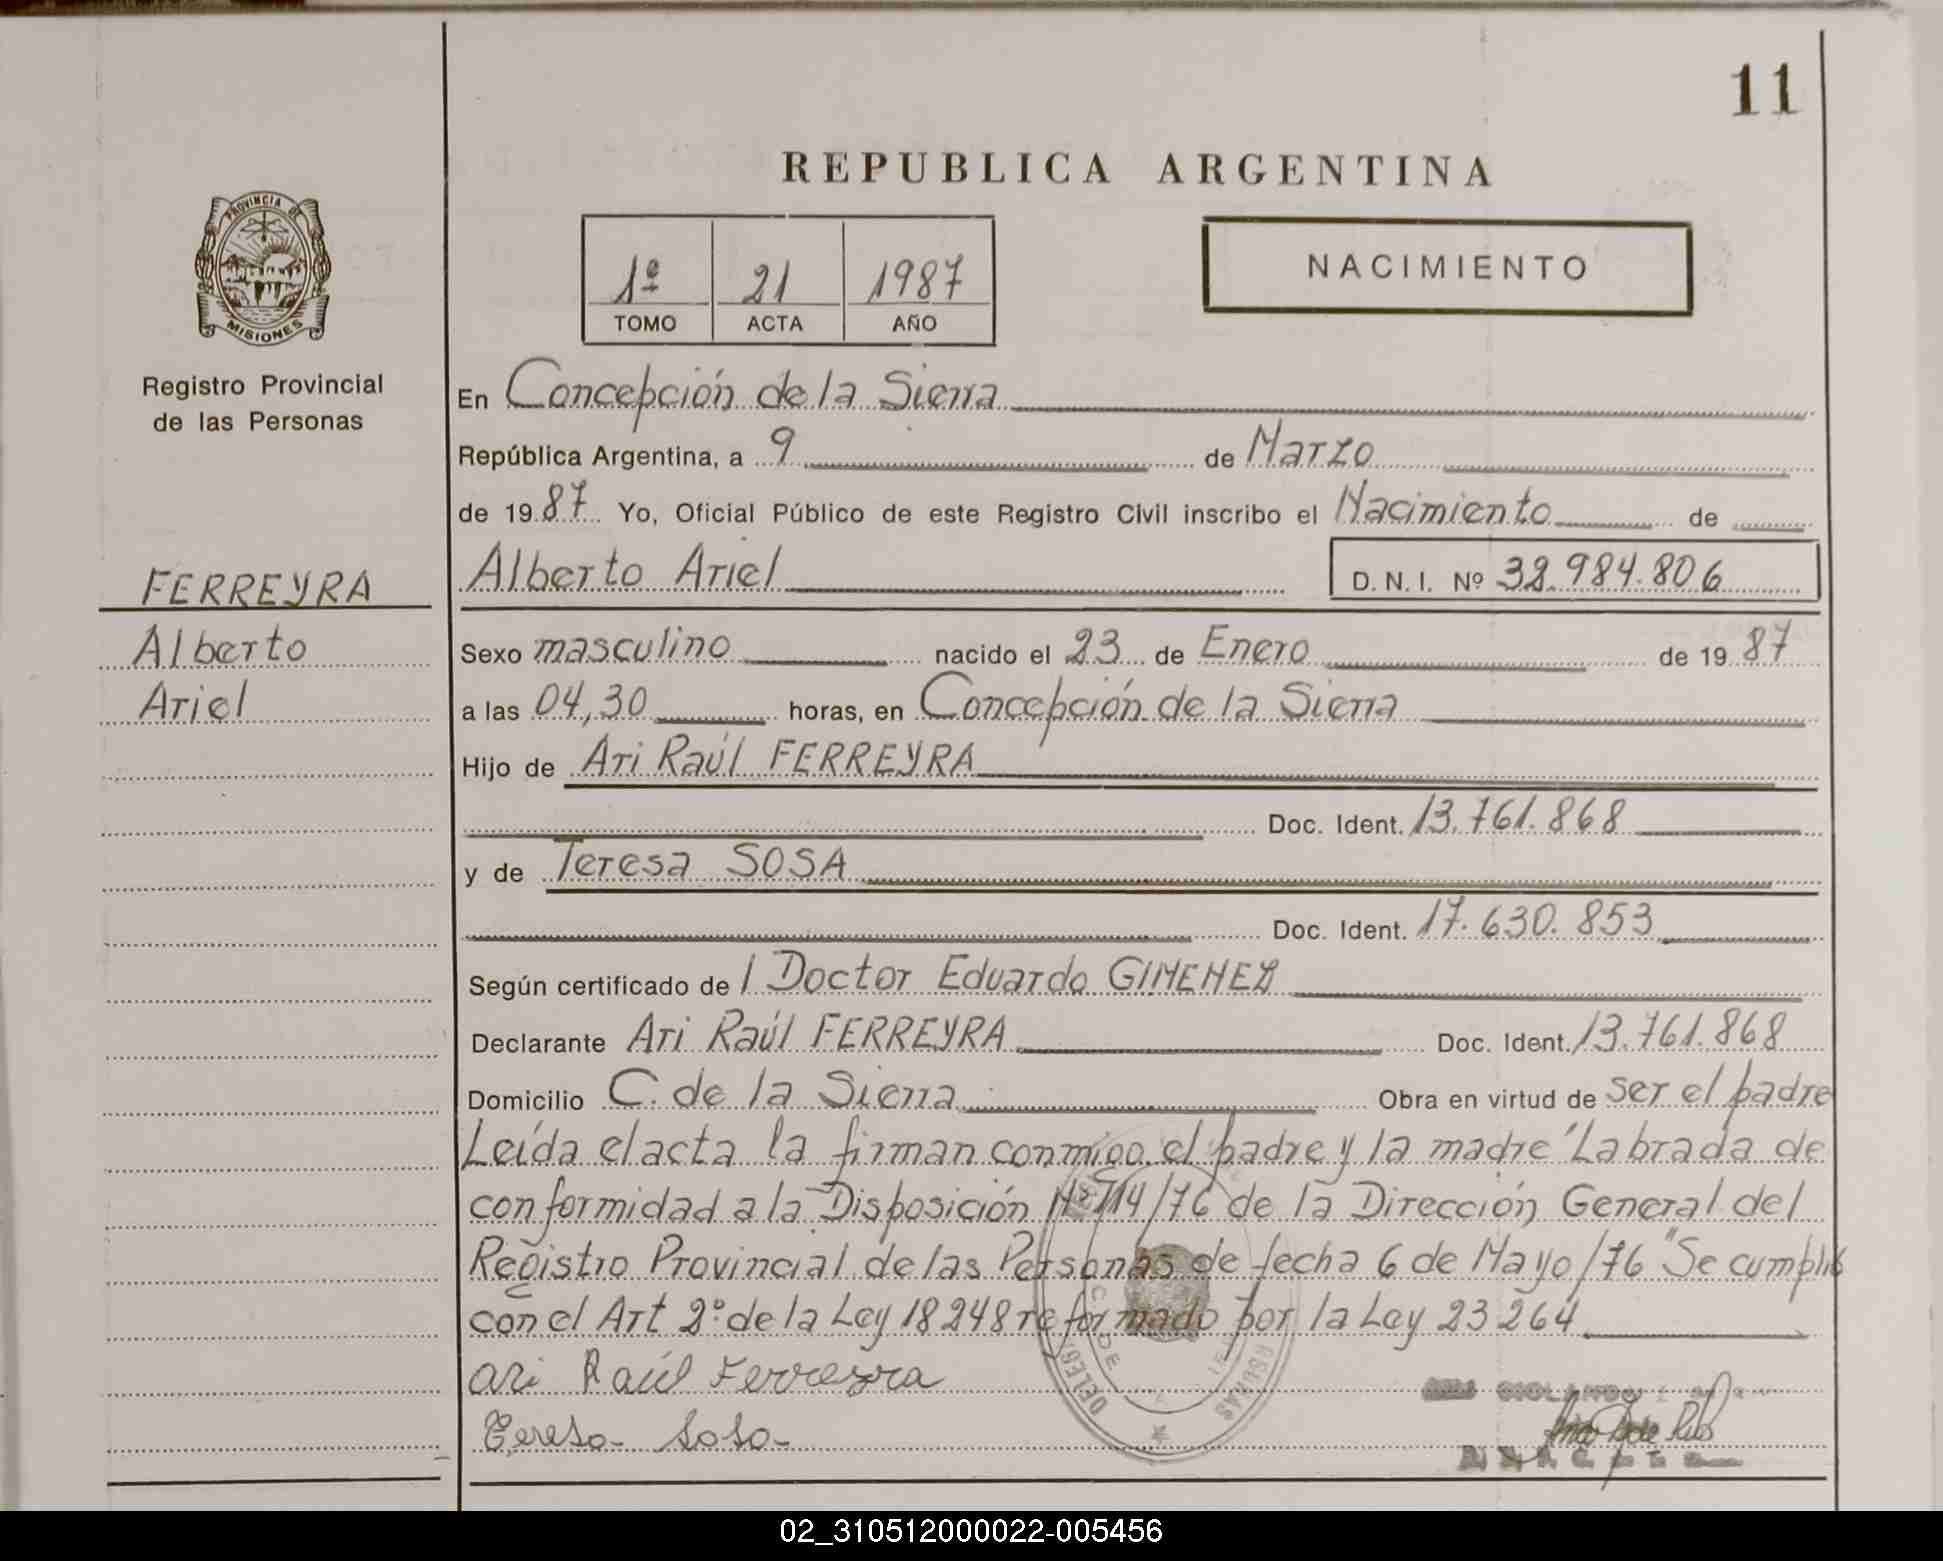 11
REPUBLICA ARGENTINA
PROVINCIA DE
MISIONES
Registro Provincial
de las Personas
1º 21 1987
TOMO ACTA AÑO
NACIMIENTO
En Concepción de la Sierra
República Argentina, a 9 de Marzo
de 1987 Yo, Oficial Público de este Registro Civil inscribo el Nacimiento de
FERREYRA
Alberto
Ariel
Alberto Ariel D.N.I. Nº 32.984.806
Sexo masculino nacido el 23 de Enero de 1987
a las 04,30 horas, en Concepción de la Sierra
Hijo de Ari Raúl FERREYRA
Doc. Ident. 13.761.868
y de Teresa SOSA
Doc. Ident. 17.630.853
Según certificado de l Doctor Eduardo GIMENEZ
Declarante Ari Raúl FERREYRA Doc. Ident. 13.761.868
Domicilio C. de la Sierra Obra en virtud de ser el padre
Leída el acta la firman conmigo el padre y la madre "Labrada de
conformidad a la Disposición Nº 714/76 de la Dirección General del
Registro Provincial de las Personas de fecha 6 de Mayo/76 "Se cumplió
con el Art 2º de la Ley 18248 reformado por la Ley 23264
Ari Raúl Ferreyra
Teresa Sosa
02_310512000022-005456